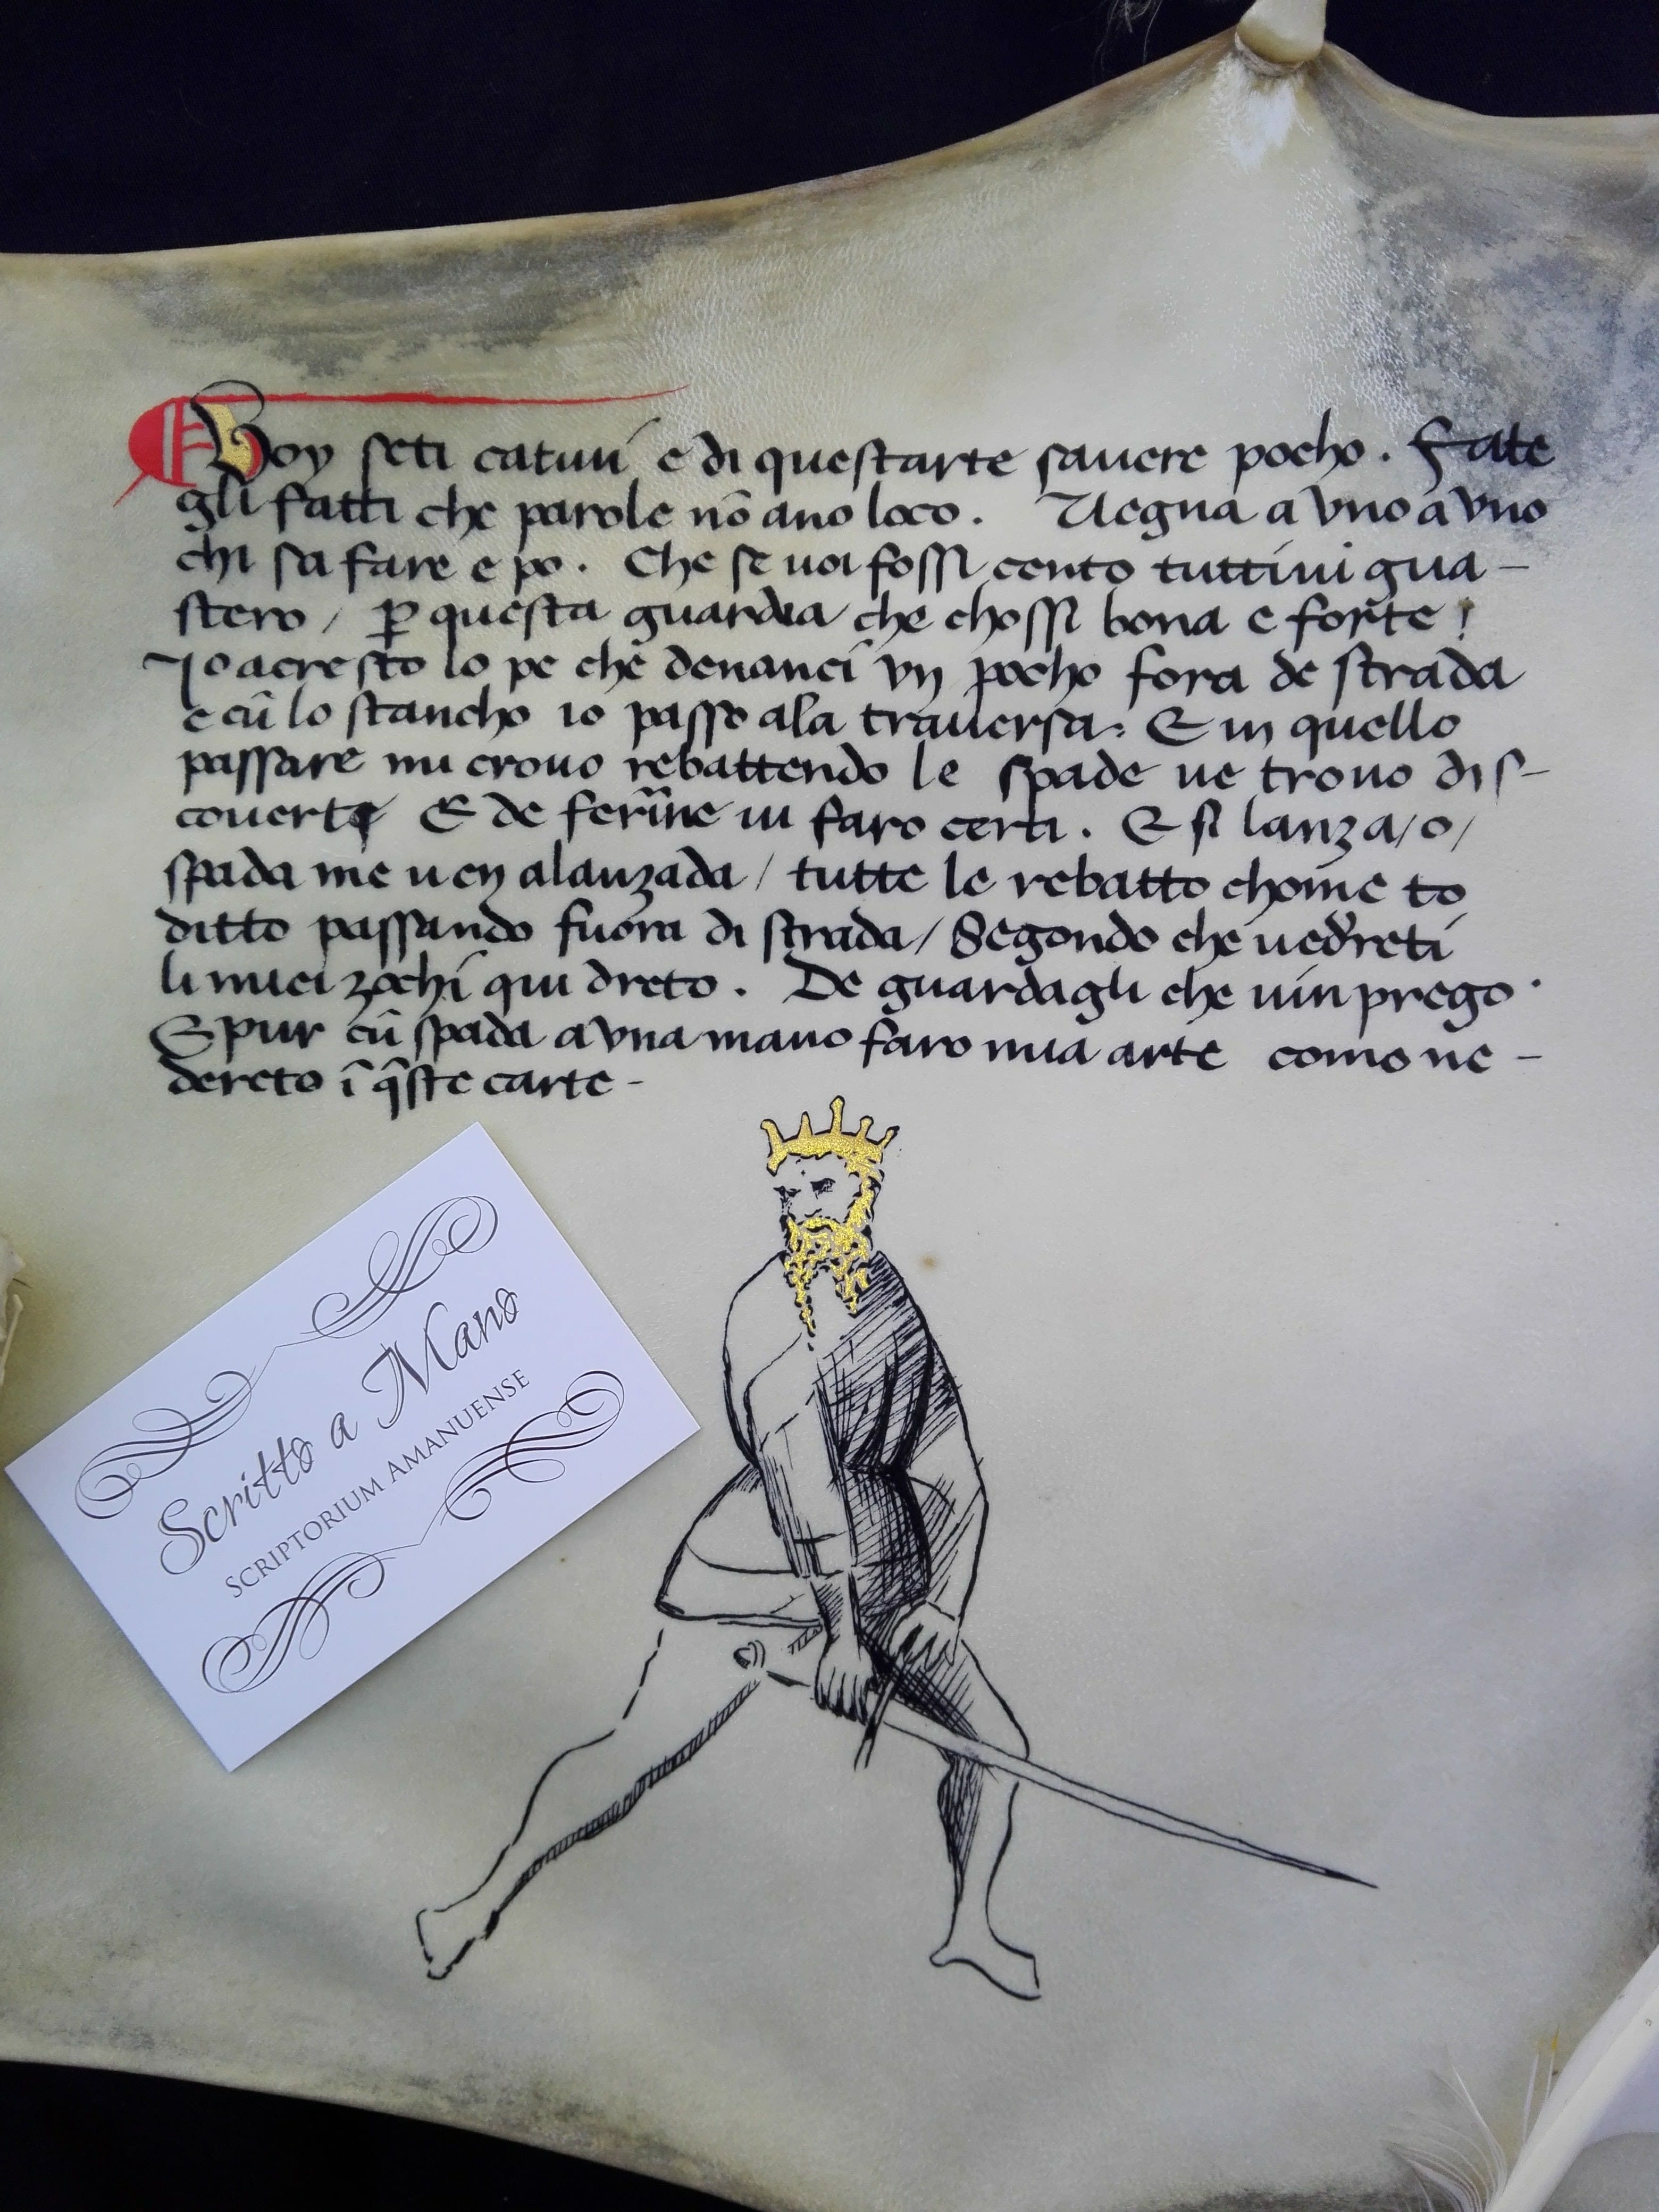 Voy seti cativi e di questarte savere pocho. Fate
gli fatti che parole nō ano loco. Uegna a vno a vno
chi sa fare e po. Che se uoi fossi cento tuttiui gua-
stero / ꝑ questa guardia che chossi bona e forte!
Io acresto lo pe che denanci vn pocho fora de strada
e cū lo stancho io passo ala traversa: E in quello
passare mi crouo rebattendo le spade ue trouo dis-
couerte E de ferire ui faro certi. E si lanza/o/
spada me uen alanzada / tutte le rebatto chome to
ditto passando fuora di strada / Segondo che uedreti
li miei zochi qui dreto. De guardagli che uin prego.
E pur cū spada a vna mano faro mia arte como ue-
dereto ī q̄ste carte-
Scritto a Mano
SCRIPTORIUM AMANUENSE